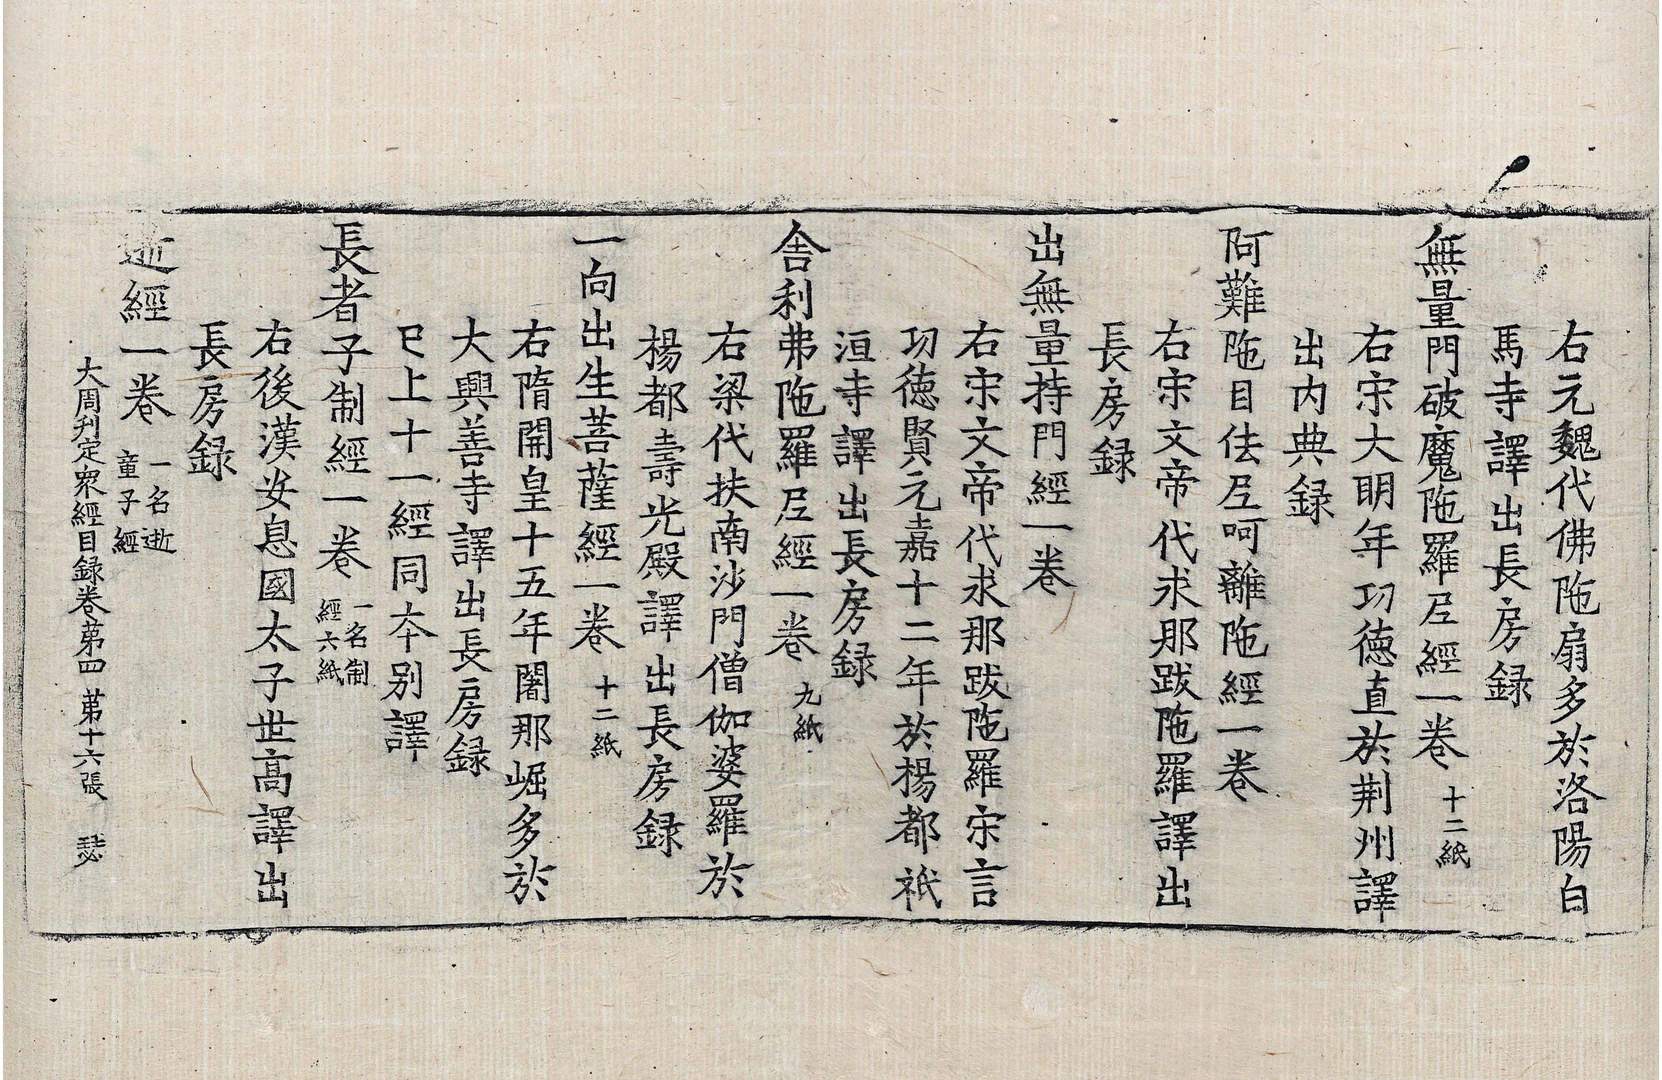 右元魏代佛陁扇多於洛陽白
馬寺譯出長房録
無量門破魔陁羅尼經一卷 十二紙
右宋大明年功德直於荆州譯
出内典録
阿難陁目佉尼呵離陁經一卷
右宋文帝代求那跋陁羅譯出
長房録
出無量持門經一卷
右宋文帝代求那跋陁羅宋言
功德賢元嘉十二年於楊都祇
洹寺譯出長房録
舎利弗陁羅尼經一卷 九紙
右梁代扶南沙門僧伽婆羅於
楊都壽光殿譯出長房録
一向出生菩薩經一卷 十二紙
右隋開皇十五年闍那崛多於
大興善寺譯出長房録
已上十一經同本别譯
長者子制經一卷 一名制
經六紙
右後漢安息國太子世高譯出
長房録
逝經一卷 一名逝
童子經
大周刋定衆經目録卷第四 第十六張 瑟